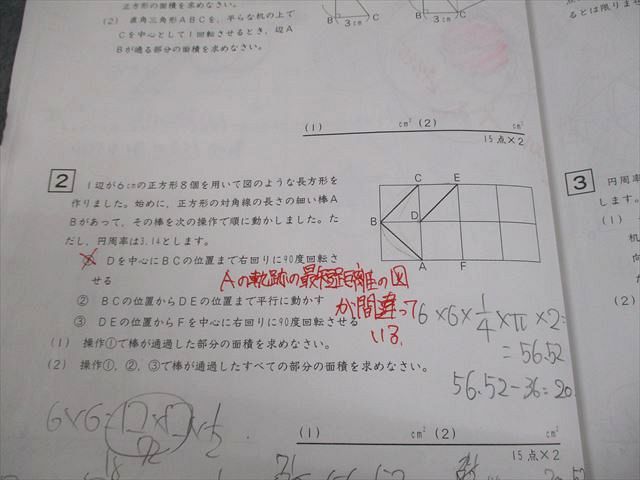 正方形の面積を求めなさい。
(2) 直角三角形ABCを、平らな机の上で
Cを中心として1回転させるとき、辺A
Bが通る部分の面積を求めなさい。
B 3cm C
B 3cm C
(1) cm² (2) cm²
15点×2
2
1辺が6cmの正方形8個を用いて図のような長方形を
作りました。始めに、正方形の対角線の長さの細い棒A
Bがあって、その棒を次の操作で順に動かしました。た
だし、円周率は3.14とします。
① Dを中心にBCの位置まで右回りに90度回転さ
せる
② BCの位置からDEの位置まで平行に動かす
③ DEの位置からFを中心に右回りに90度回転させる
(1) 操作①で棒が通過した部分の面積を求めなさい。
(2) 操作①、②、③で棒が通過したすべての部分の面積を求めなさい。
C E
B D
A F
Aの軌跡の最短距離の図
が間違って
いる.
6×6×1/4×π×2=
=56.52
56.52-36=20
6×6
(1) cm² (2) cm²
15点×2
3
円周率
します。
(1)
机
向
た
(2)
るとは限りま